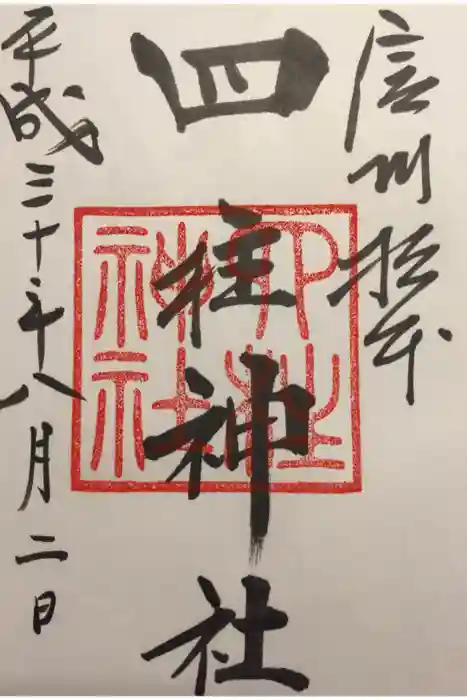 信州松本
四柱神社
四柱神社
平成三十年八月二日